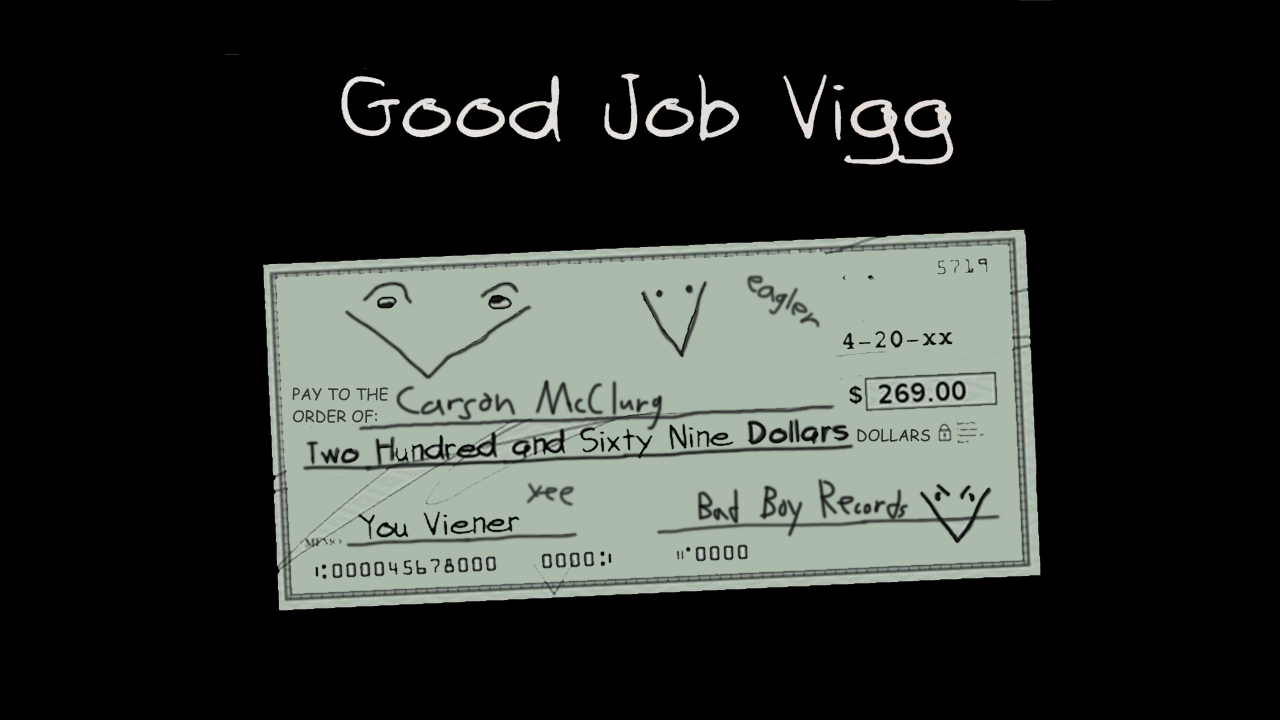 Good Job Vigg
5719
eagler
4-20-xx
PAY TO THE
ORDER OF: Carson McClurg $ 269.00
Two Hundred and Sixty Nine Dollars DOLLARS
yee
MEMO You Viener Bad Boy Records
⑆000045678000 0000⑆ ⑈0000